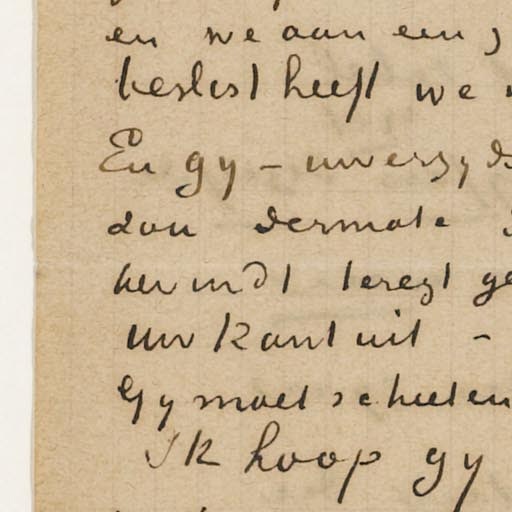 en we aan een
beslist heeft we
En gy - uwerzyds
dan dermate
bevindt teregt ge
uw kant uit -
Gy moet schieten
Ik hoop gy